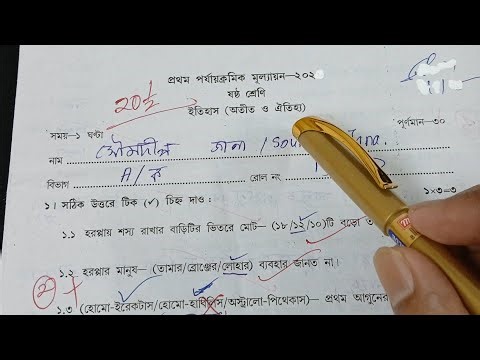 প্রথম পর্যায়ক্রমিক মূল্যায়ন—২০২
ষষ্ঠ শ্রেণি
20½
ইতিহাস (অতীত ও ঐতিহ্য)
সময়—১ ঘণ্টা পূর্ণমান—৩০
নাম সৌম্যদীপ জানা / Sou
বিভাগ A/ক রোল নং
১। সঠিক উত্তরে টিক (✓) চিহ্ন দাও : ১×৩=৩
১.১ হরপ্পায় শস্য রাখার বাড়িটির ভিতরে মোট— (১৮/১২/১০)টি বড়ো
১.২ হরপ্পার মানুষ— (তামার/ব্রোঞ্জের/লোহার) ব্যবহার জানত না।
2
১.৩ (হোমো-ইরেকটাস/হোমো-হাবিলিস/অস্ট্রালো-পিথেকাস)— প্রথম আগুনের